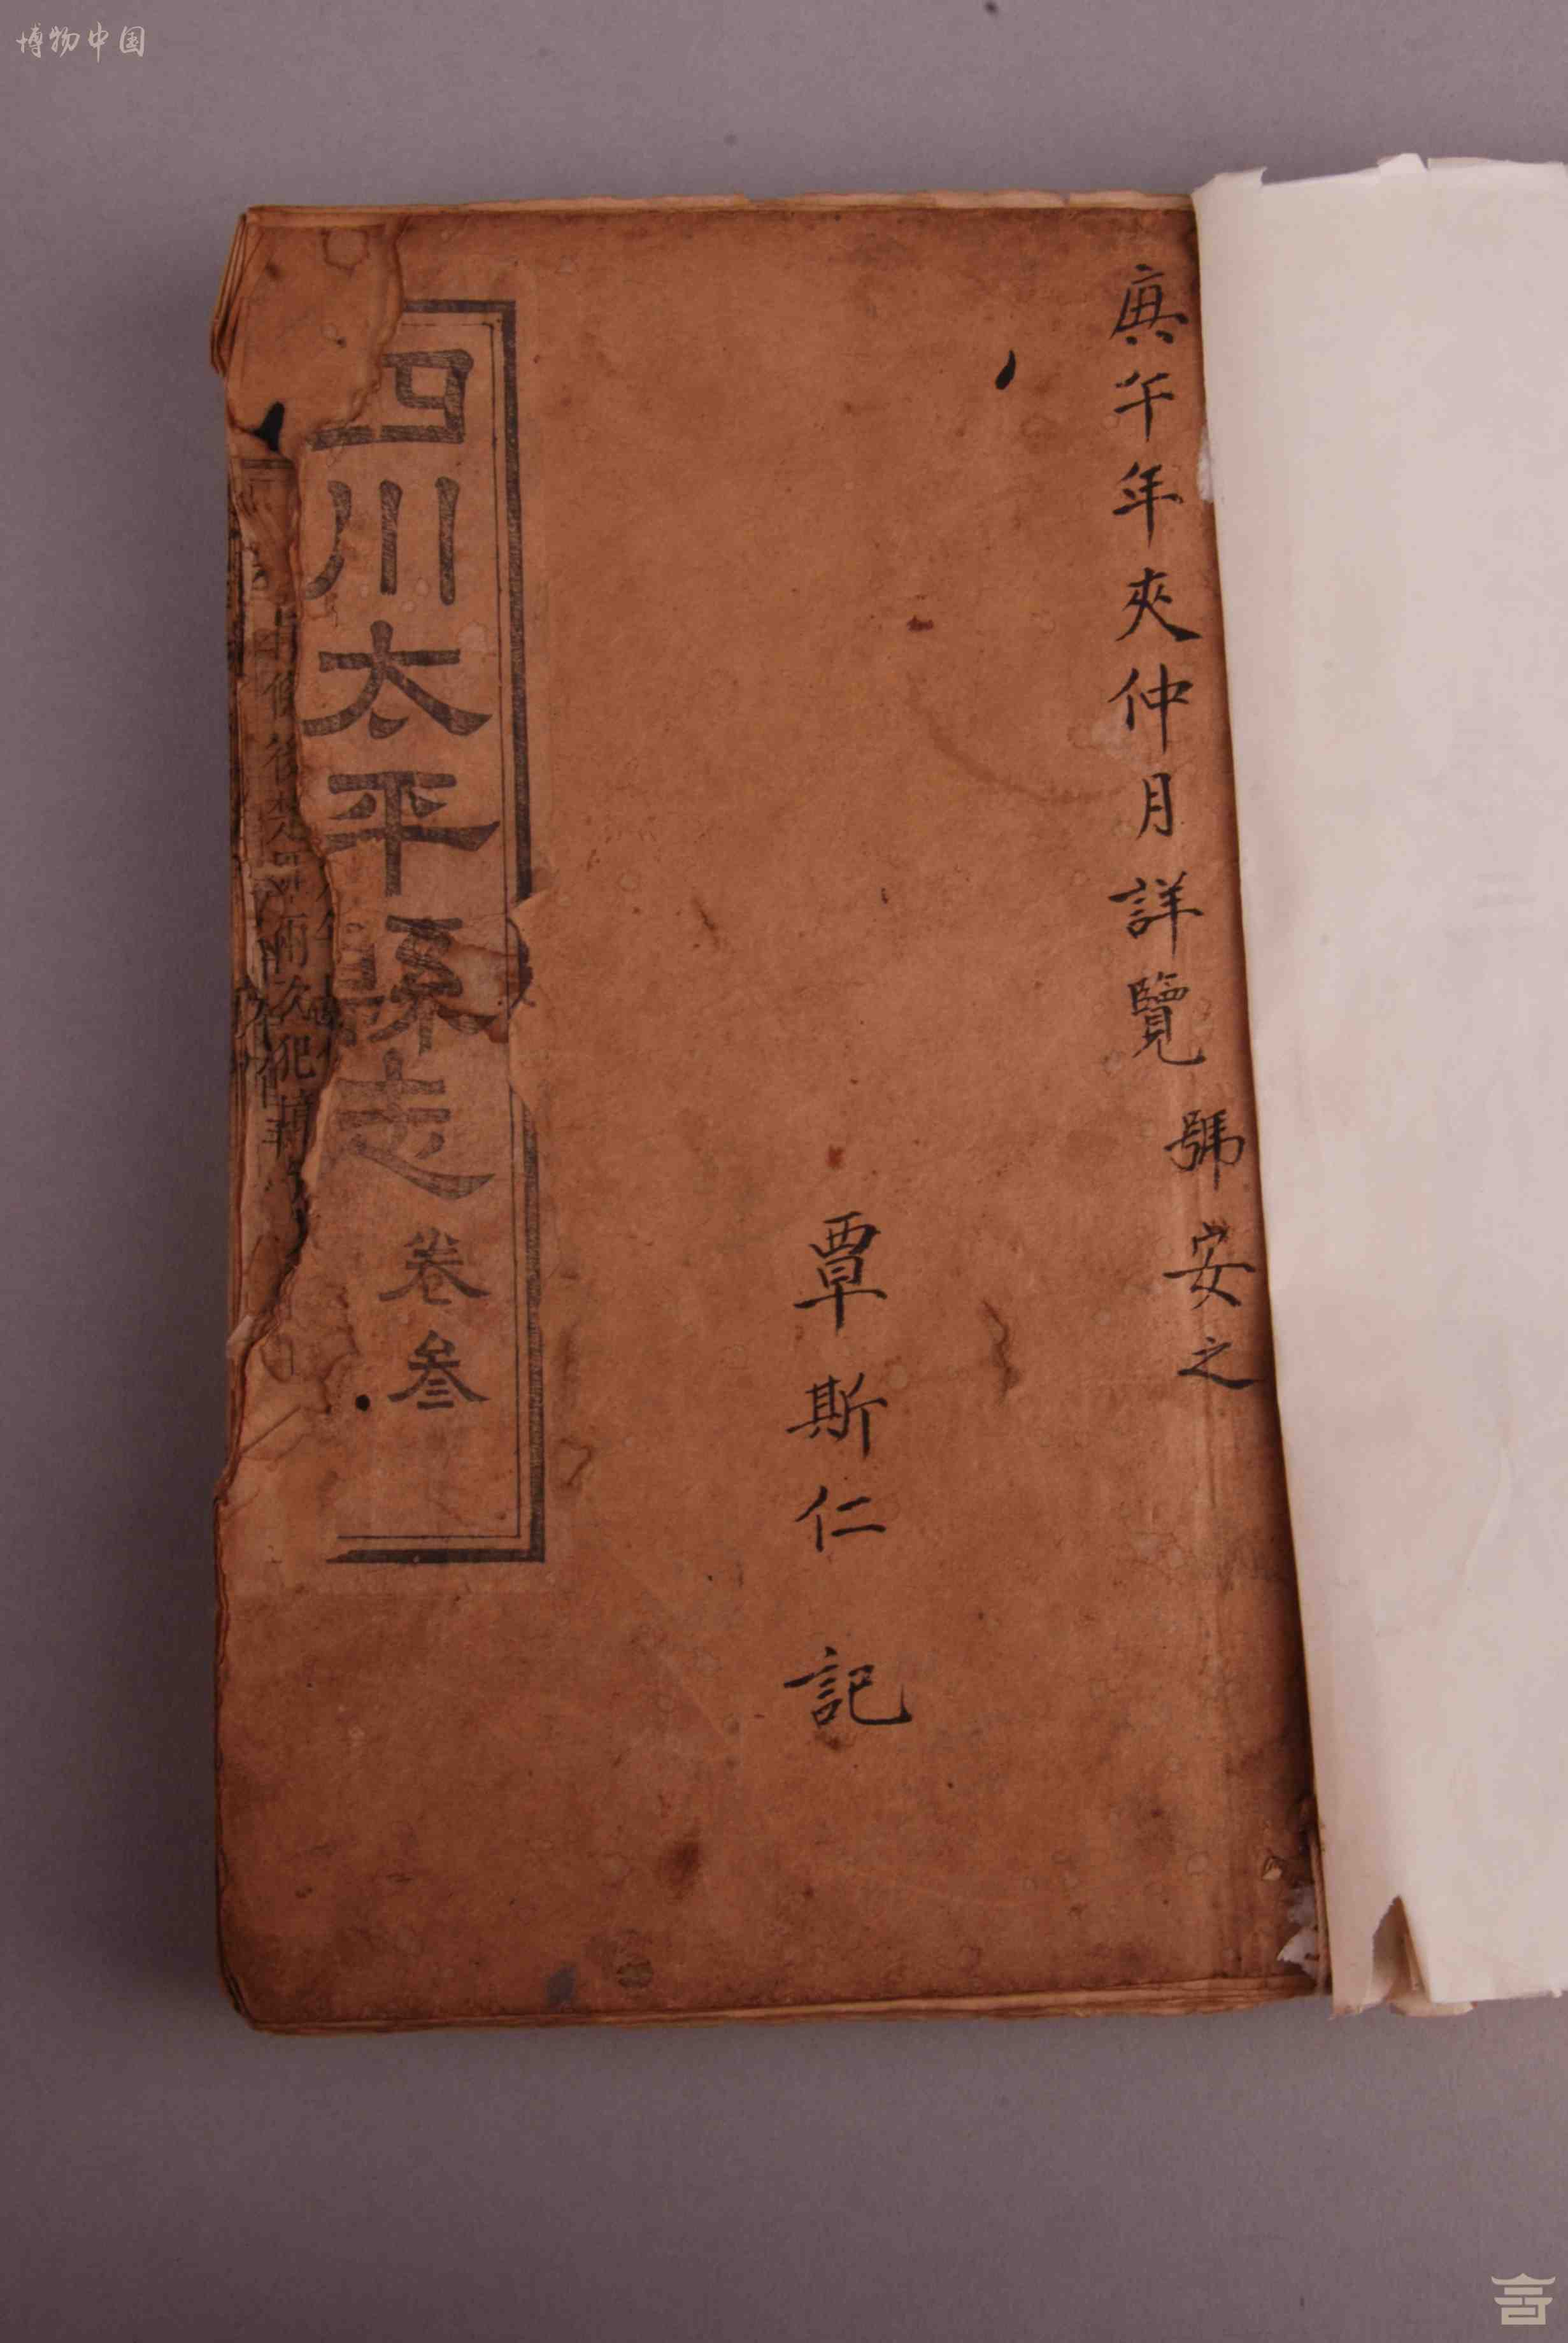 博物中国
庚午年夾仲月詳覽
號安之
覃斯仁記
四川太平縣志卷叁